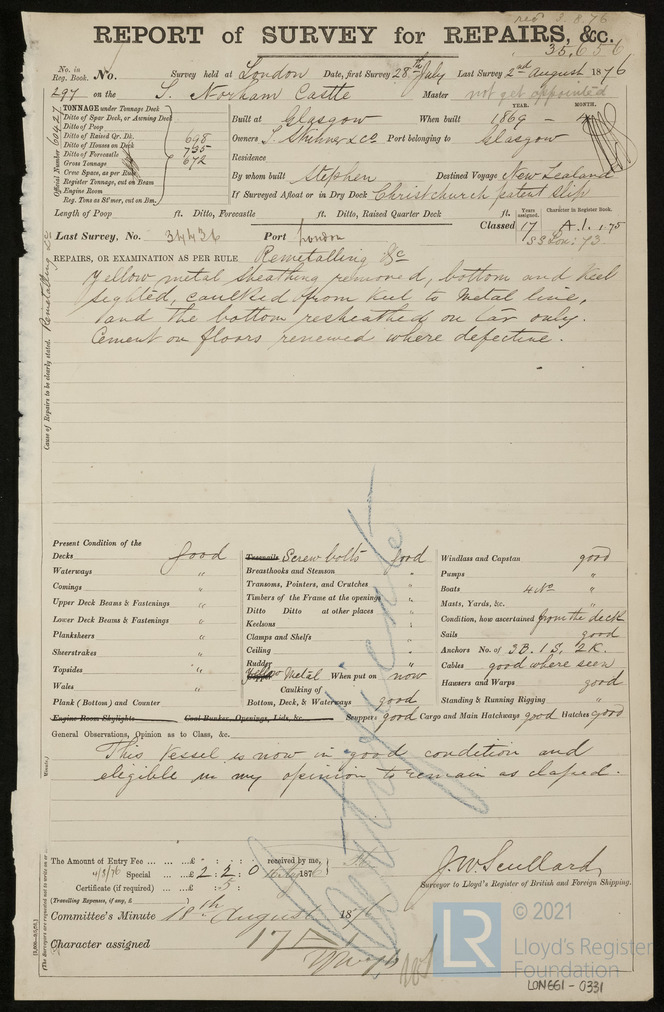 rec 3.8.76
REPORT of SURVEY for REPAIRS, &c.
35,656
No. in Reg. Book. No. Survey held at London Date, first Survey 28th July Last Survey 2nd August 1876
297 on the S. Norham Castle Master not yet appointed
TONNAGE under Tonnage Deck
Ditto of Spar Deck, or Awning Deck
Ditto of Poop
Ditto of Raised Qr. Dk. 698
Ditto of Houses on Deck 735
Ditto of Forecastle 672
Gross Tonnage
Crew Space, as per Rule
Register Tonnage, cut on Beam
Engine Room
Reg. Tons as St'mer, cut on Bm.
Official Number 60427
YEAR. MONTH.
Built at Glasgow When built 1869 -
Owners Port belonging to Glasgow
Residence
By whom built Stephen Destined Voyage New Zealand
If Surveyed Afloat or in Dry Dock Christchurch patent slip
Length of Poop ft. Ditto, Forecastle ft. Ditto, Raised Quarter Deck ft.
Years assigned. Character in Register Book.
Classed 17 A.1. 1.75
SS Lon: 73
Last Survey, No. 34436 Port London
REPAIRS, OR EXAMINATION AS PER RULE Remetalling &c
Yellow metal sheathing removed, bottom and keel
sighted, caulked from keel to metal line,
and the bottom resheathed on tar only.
Cement on floors renewed where defective.
Cause of Repairs to be clearly stated. Remetalling &c
Present Condition of the
Decks good
Waterways "
Comings "
Upper Deck Beams & Fastenings "
Lower Deck Beams & Fastenings "
Planksheers "
Sheerstrakes "
Topsides "
Wales "
Plank (Bottom) and Counter "
Engine Room Skylights Coal Bunker, Openings, Lids, &c.
Treenails Screw bolts good
Breasthooks and Stemson "
Transoms, Pointers, and Crutches "
Timbers of the Frame at the openings "
Ditto Ditto at other places "
Keelsons "
Clamps and Shelfs "
Ceiling "
Rudder "
Yellow Metal When put on now
Caulking of
Bottom, Deck, & Waterways good
Scuppers good Cargo and Main Hatchways good Hatches good
Windlass and Capstan good
Pumps "
Boats 4 No "
Masts, Yards, &c. "
Condition, how ascertained from the deck
Sails good
Anchors No. of 3B. 1S, 2K.
Cables good where seen
Hawsers and Warps good
Standing & Running Rigging "
General Observations, Opinion as to Class, &c.
This Vessel is now in good condition and
eligible in my opinion to remain as classed.
Certificate
The Amount of Entry Fee ... £ : : received by me,
4/8/76 Special ... £ 2 : 2 : 0 1876
Certificate (if required) ... £ : 5 :
(Travelling Expenses, if any, £
J.W. Scullard
Surveyor to Lloyd's Register of British and Foreign Shipping.
Committee's Minute 18th August 1876
Character assigned 17
© 2021
LR
Lloyd's Register
Foundation
LON661-0331